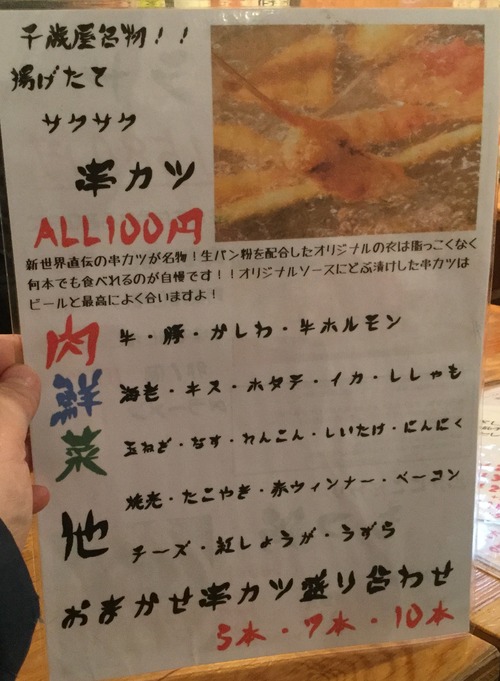 千歳屋名物！！
揚げたて
サクサク
串カツ
ALL100円
新世界直伝の串カツが名物！生パン粉を配合したオリジナルの衣は脂っこくなく
何本でも食べれるのが自慢です！！オリジナルソースにどぶ漬けした串カツは
ビールと最高によく合いますよ！
肉 牛・豚・かしわ・牛ホルモン
海老・キス・ホタテ・イカ・ししゃも
菜 玉ねぎ・なす・れんこん・しいたけ・にんにく
他 焼売・たこやき・赤ウィンナー・ベーコン
チーズ・紅しょうが・うずら
おまかせ串カツ盛り合わせ
5本・7本・10本